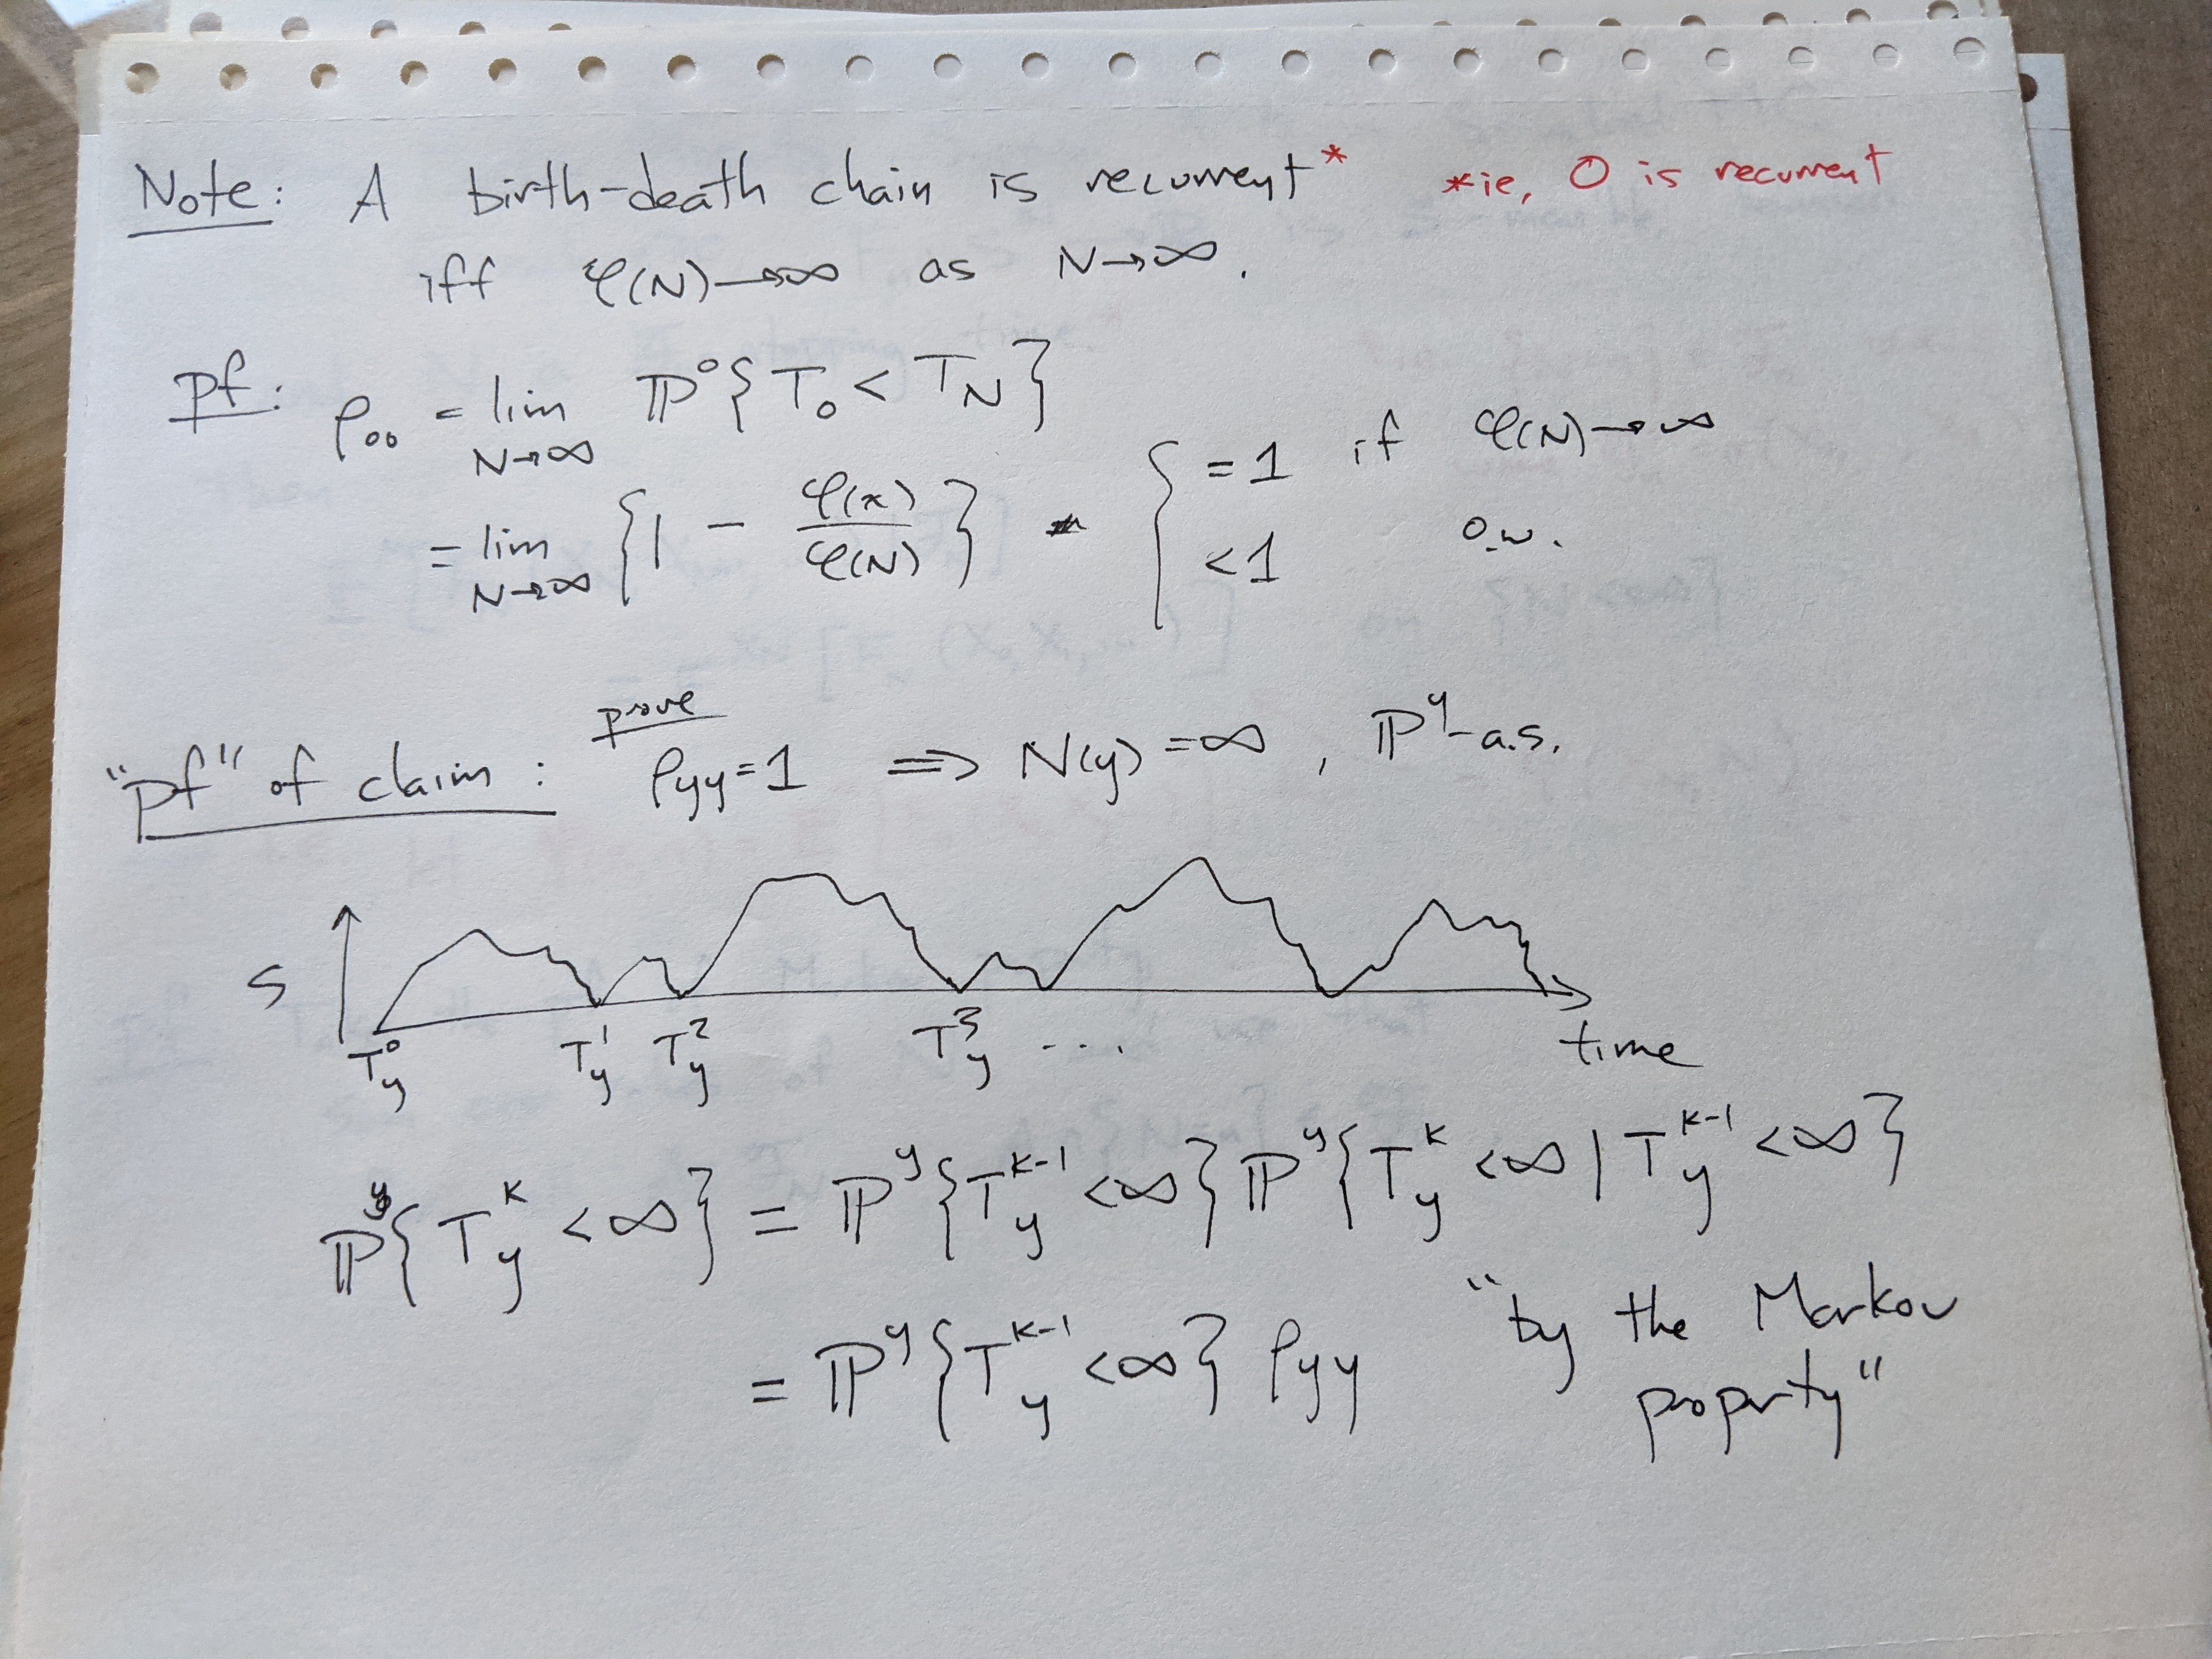 Note: A birth-death chain is recurrent* *ie, 0 is recurrent
iff φ(N)→∞ as N→∞.
pf: ρ₀₀ = lim_{N→∞} ℙ⁰{T₀ < T_N}
= lim_{N→∞} {1 - φ(x)/φ(N)} { =1 if φ(N)→∞
<1 o.w.
prove
"pf" of claim: ρ_yy=1 ⟹ N(y)=∞, ℙ^y-a.s.
S
T_y^0 T_y^1 T_y^2 T_y^3 ... time
ℙ^y{T_y^k <∞} = ℙ^y{T_y^{k-1} <∞} ℙ^y{T_y^k <∞ | T_y^{k-1} <∞}
= ℙ^y{T_y^{k-1} <∞} ρ_yy "by the Markov
property"